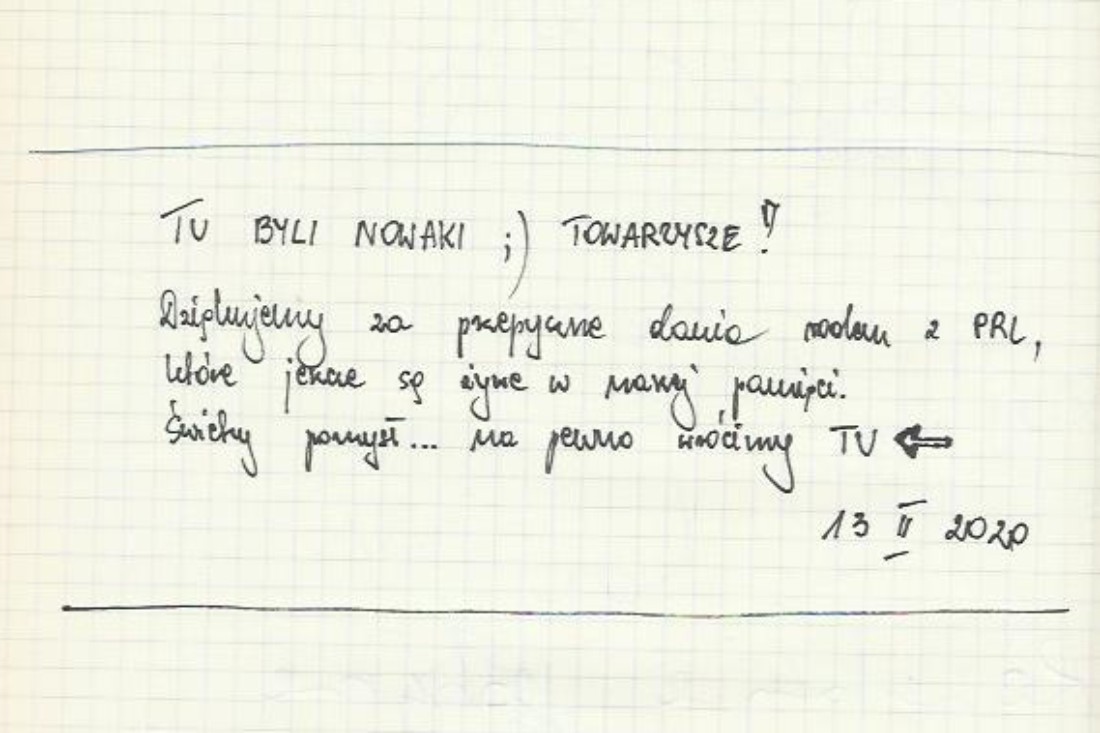 TU BYLI NOWAKI ;) TOWARZYSZE!
Dziękujemy za przepyszne dania rodem z PRL,
które jeszcze są żywe w naszej pamięci.
Świetny pomysł... na pewno wrócimy TU ⇐
13 II 2020